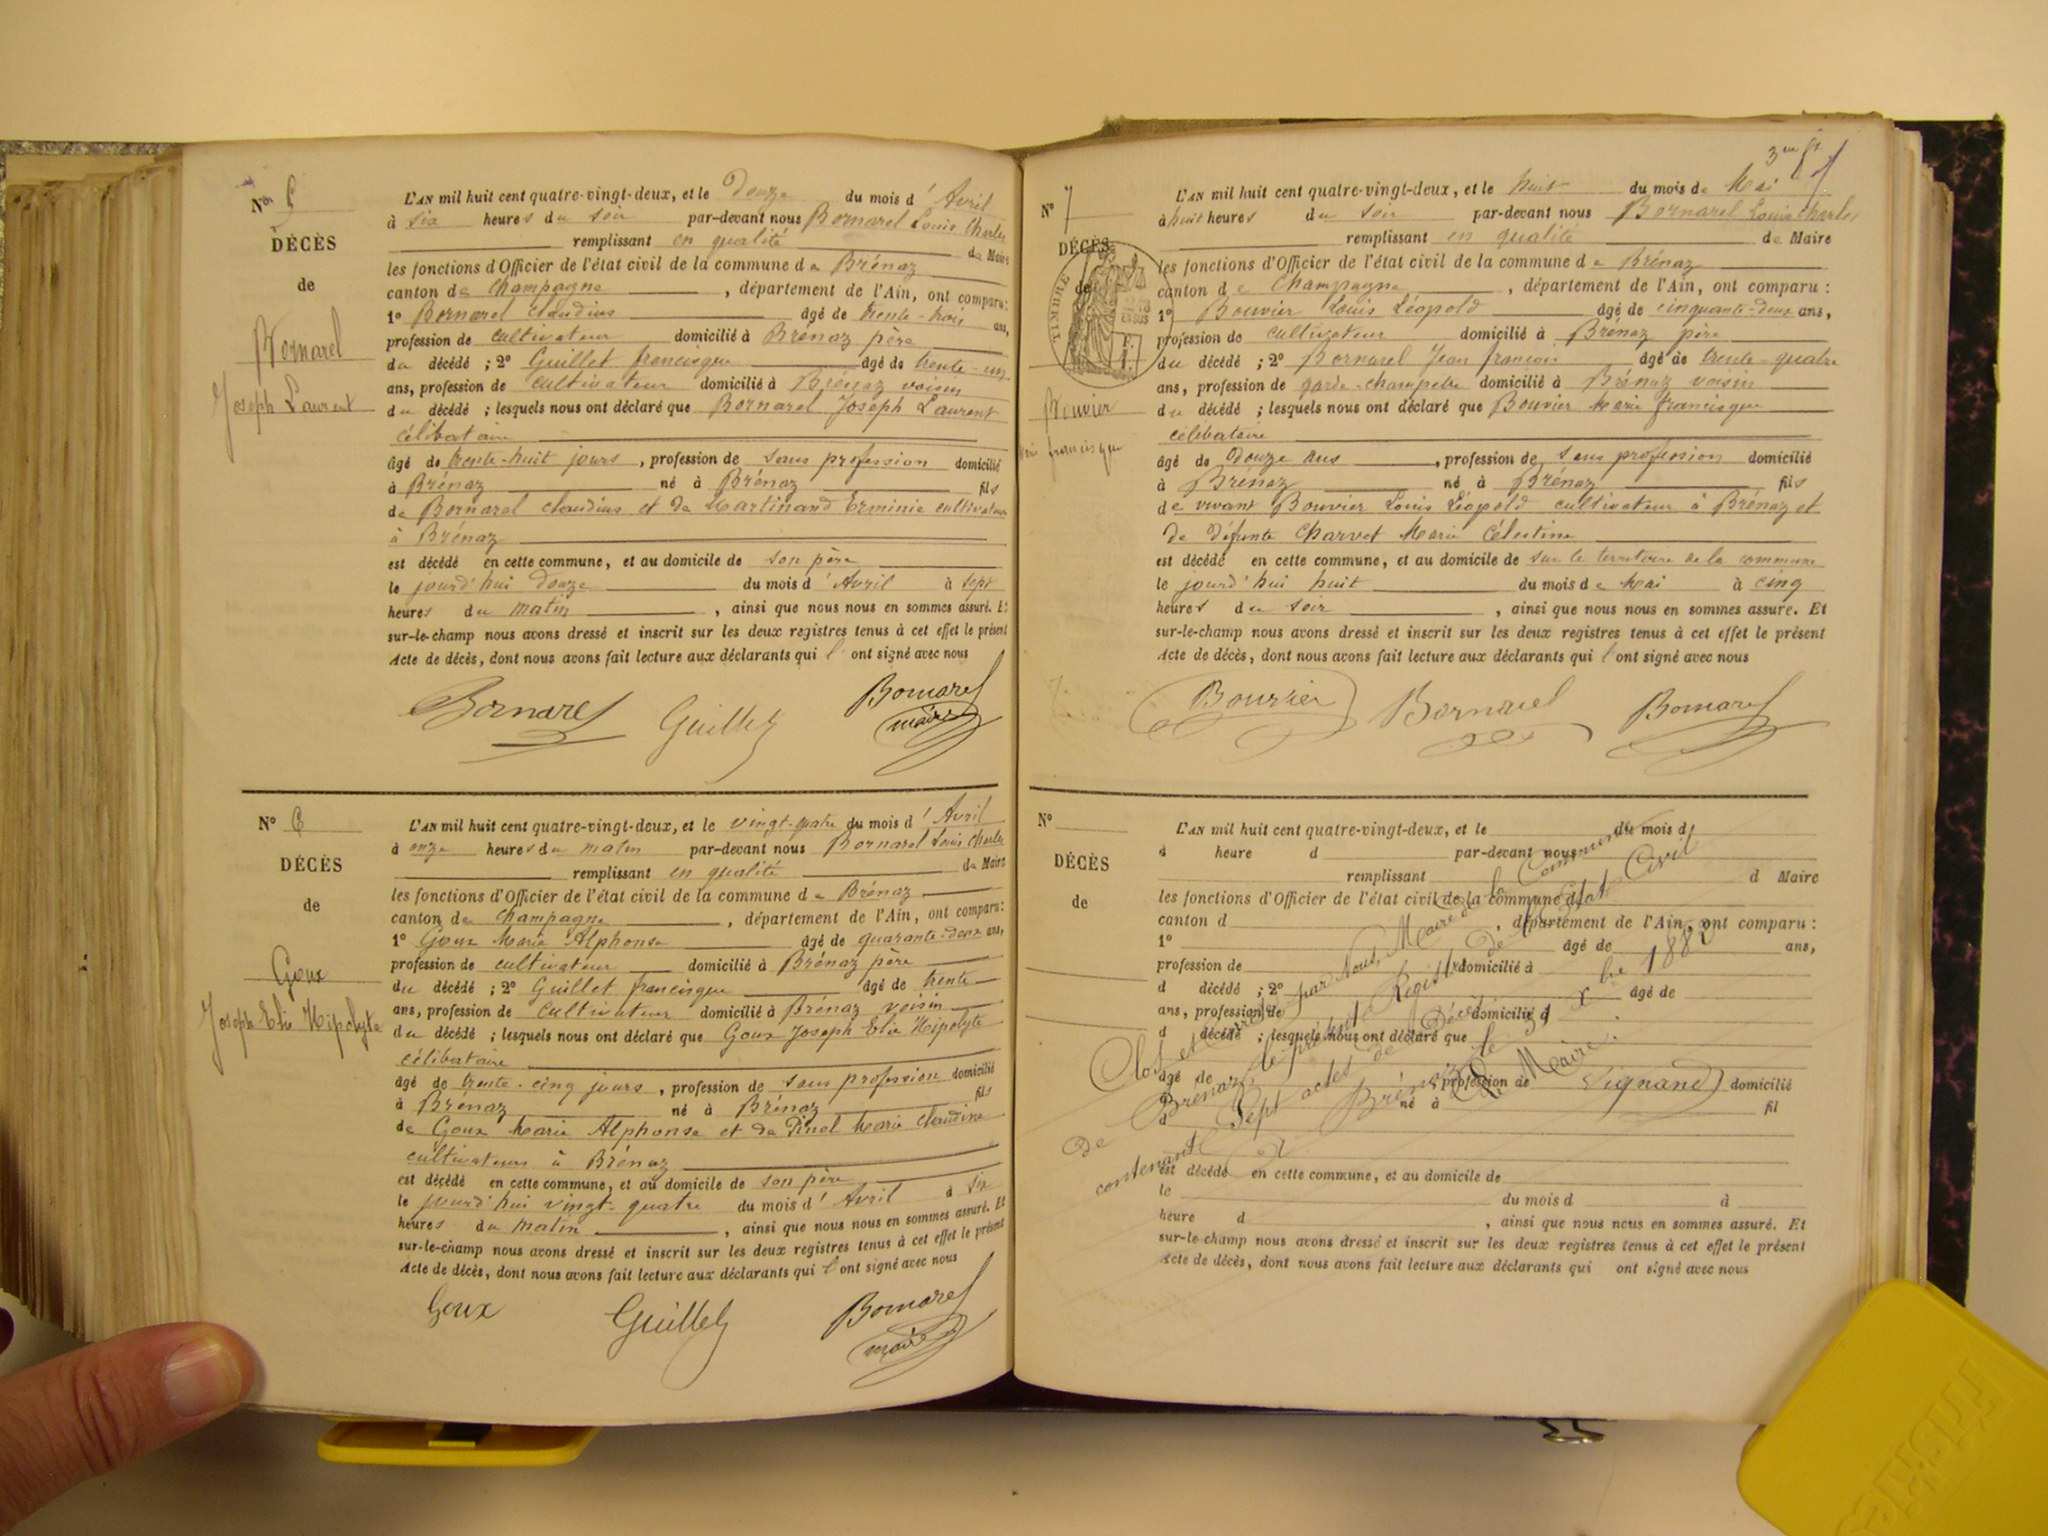 No 6
DÉCÈS
de
Bornarel
Joseph Laurent
L'AN mil huit cent quatre-vingt-deux, et le Douze du mois d' Avril
à six heures du soir par-devant nous Bornarel Louis Charles
remplissant en qualité de Maire
les fonctions d'Officier de l'état civil de la commune de Brénaz
canton de Champagne, département de l'Ain, ont comparu:
1° Bornarel Claudius âgé de trente-trois ans,
profession de cultivateur domicilié à Brénaz père
du décédé; 2° Guillet francisque âgé de trente-un
ans, profession de cultivateur domicilié à Brénaz voisin
du décédé; lesquels nous ont déclaré que Bornarel Joseph Laurent
célibataire
âgé de trente-huit jours, profession de sans profession domicilié
à Brénaz né à Brénaz fils
de Bornarel Claudius et de Martinand Erminie cultivateurs
à Brénaz
est décédé en cette commune, et au domicile de son père
le jourd'hui douze du mois d'Avril à sept
heures du matin, ainsi que nous nous en sommes assuré. Et
sur-le-champ nous avons dressé et inscrit sur les deux registres tenus à cet effet le présent
Acte de décès, dont nous avons fait lecture aux déclarants qui l'ont signé avec nous
Bornarel Guillet Bornarel
maire
N° 6
DÉCÈS
de
Goux
Joseph Elie Hipolyte
L'AN mil huit cent quatre-vingt-deux, et le vingt-quatre du mois d' Avril
à onze heures du matin par-devant nous Bornarel Louis Charles
remplissant en qualité de Maire
les fonctions d'Officier de l'état civil de la commune de Brénaz
canton de Champagne, département de l'Ain, ont comparu:
1° Goux Marie Alphonse âgé de quarante-deux ans,
profession de cultivateur domicilié à Brénaz père
du décédé; 2° Guillet francisque âgé de trente
ans, profession de cultivateur domicilié à Brénaz voisin
du décédé; lesquels nous ont déclaré que Goux Joseph Elie Hipolyte
célibataire
âgé de trente-cinq jours, profession de sans profession domicilié
à Brénaz né à Brénaz fils
de Goux Marie Alphonse et de Pinel Marie Claudine
cultivateurs à Brénaz
est décédé en cette commune, et au domicile de son père
le jourd'hui vingt-quatre du mois d'Avril à six
heures du matin, ainsi que nous nous en sommes assuré. Et
sur-le-champ nous avons dressé et inscrit sur les deux registres tenus à cet effet le présent
Acte de décès, dont nous avons fait lecture aux déclarants qui l'ont signé avec nous
Goux Guillet Bornarel
maire
N° 7
DÉCÈS
de
TIMBRE
Bouvier
francisque
L'AN mil huit cent quatre-vingt-deux, et le huit du mois de Mai
à huit heures du soir par-devant nous Bornarel Louis Charles
remplissant en qualité de Maire
les fonctions d'Officier de l'état civil de la commune de Brénaz
canton de Champagne, département de l'Ain, ont comparu:
1° Bouvier Louis Léopold âgé de cinquante-deux ans,
profession de cultivateur domicilié à Brénaz père
du décédé; 2° Bornarel Jean francois âgé de trente-quatre
ans, profession de garde-champetre domicilié à Brénaz voisin
du décédé; lesquels nous ont déclaré que Bouvier Marie francisque
célibataire
âgé de Douze ans, profession de sans profession domicilié
à Brénaz né à Brénaz fils
de vivant Bouvier Louis Léopold cultivateur à Brénaz et
de défunte Charvet Marie Célestine
est décédé en cette commune, et au domicile de sur le territoire de la commune
le jourd'hui huit du mois de Mai à cinq
heures du soir, ainsi que nous nous en sommes assuré. Et
sur-le-champ nous avons dressé et inscrit sur les deux registres tenus à cet effet le présent
Acte de décès, dont nous avons fait lecture aux déclarants qui l'ont signé avec nous
Bouvier Bornarel Bornarel
N°
DÉCÈS
de
L'AN mil huit cent quatre-vingt-deux, et le du mois d
à heure d par-devant nous
remplissant d Maire
les fonctions d'Officier de l'état civil de la commune d
canton d, département de l'Ain, ont comparu:
1° âgé de ans,
profession de domicilié à
d décédé; 2° âgé de
ans, profession de domicilié à
d décédé; lesquels nous ont déclaré que
âgé de, profession de domicilié
à né à fil
d
est décédé en cette commune, et au domicile de
le du mois d à
heure d, ainsi que nous nous en sommes assuré. Et
sur-le-champ nous avons dressé et inscrit sur les deux registres tenus à cet effet le présent
Acte de décès, dont nous avons fait lecture aux déclarants qui ont signé avec nous
Clos et arrêté par Nous, Maire de la Commune
De Brénaz, le présent Registre de l'Etat Civil
contenant Sept actes de Décès
à Brénaz le 31 Xbre 1882
Le Maire
Signand